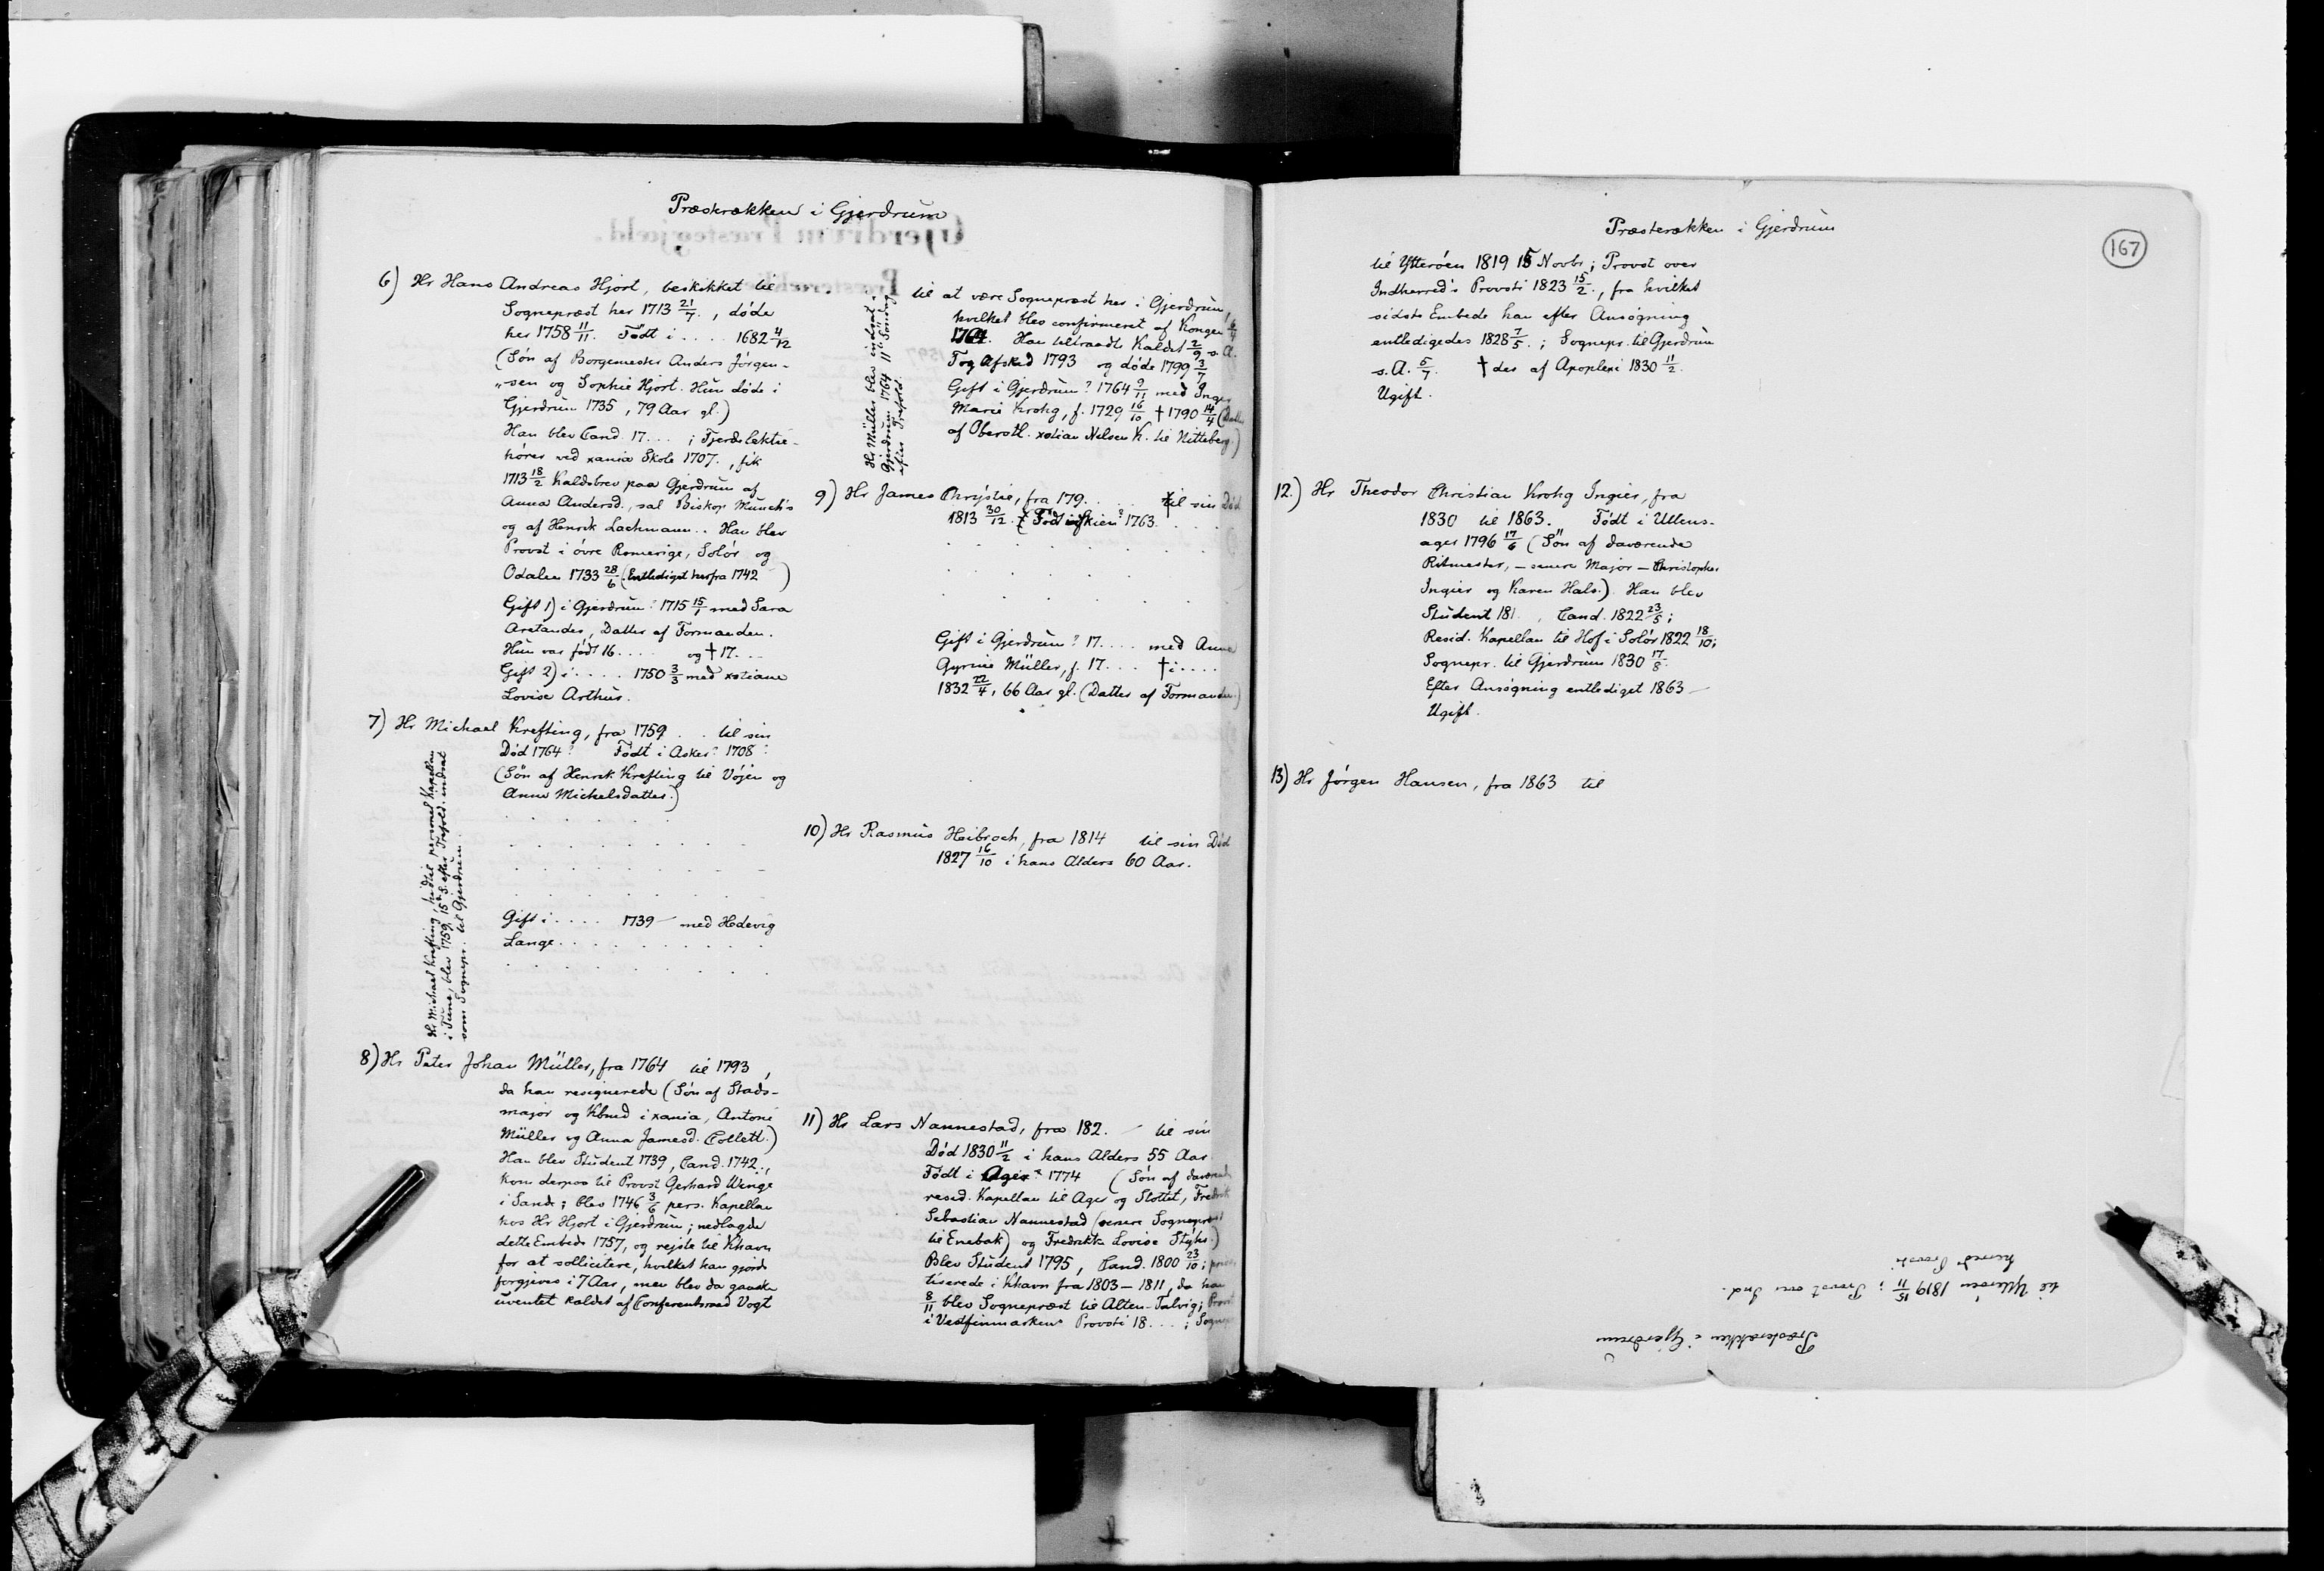 Præsterækken i Gjerdrum
6) Hr Hans Andreas Hjort, beskikket til
Sognepræst her 1713 21/7., døde
her 1758 11/11. Født i .... 1682 4/12
(Søn af Borgemester Anders Jørgen-
"sen og Sophie Hjort. Hun døde i
Gjerdrum 1735, 79 Aar gl.)
Han blev Cand. 17...; Fjerde lektie-
hører ved xania Skole 1707., fik
1713 18/2 Kaldsbrev paa Gjerdrum af
Anna Andersd., sal. Biskop Munch's
og af Henrik Lachmann.. Han blev
Provst i øvre Romerige, Solør og
Odalen 1733 28/6 (Entlediget herfra 1742 )
Gift 1) i Gjerdrum? 1715 15/1 med Sara
Arctander, Datter af Formanden.
Hun var født 16.... og † 17...
Gift 2) i..... 1750 3/3 med xstiane
Lovise Arthur.
7) Hr Michael Krefting, fra 1759 . . til sin
Død 1764? Født i Asker? 1708?
(Søn af Henrik Krefting til Vøjen og
Anna Michelsdatter.)
Gift i..... 1739 — med Hedevig
Lange. . . . . . . . . .
Hr Michael Krefting, hidtil personel Kapellan
i Tune, blev 1759, 15de S. efter Trefold. indsat
som Sognepr. til Gjerdrum.
8) Hr Peter Johan Müller, fra 1764 til 1793,
da han resignerede (Søn af Stads-
major og Kbmd i xania, Antoni
Müller og Anna Jamesd. Collett.)
Han blev Student 1739, Cand. 1742.,
kom derpaa til Provst Gerhard Wenge
i Sande; blev 1746 3/6 pers. Kapellan
hos Hr Hjort i Gjerdrum; nedlagde
dette Embede 1757, og rejste til Khavn
for at sollicitere, hvilket han gjorde
forgjæves i 7 Aar, men blev da ganske
uventet kaldet af Conferentsraad Vogt
Hr Müller blev indsat i
Gjerdrum 1764 11te Søndag
efter Trefold.
til at være Sognepræst her i Gjerdrum,
hvilket blev confirmeret af Kongen 6/4
1764. Han tiltraadte Kaldet 2/9 s. A.
Tog Afsked 1793 og døde 1799 3/7
Gift i Gjerdrum? 1764 9/11 med Inger
Marie Krohg, f. 1729 16/10 † 1790 14/4 (Datter
af Oberstl. xstian Nelsen K. til Nitteberg.)
9) Hr James Chrystie, fra 179. . til sin Død
1813 30/12. Født i Skien? 1763. . . . .
Gift i Gjerdrum? 17.... med Anna
Gyrine Müller, f. 17.... † i ....
1832 22/4, 66 Aar gl. (Datter af Formanden.)
10) Hr Rasmus Heibroch, fra 1814 til sin Død
1827 16/10 i hans Alders 60 Aar.
11) Hr Lars Nannestad, fra 182. — til sin
Død 1830 11/2 i hans Alders 55 Aar
Født i Ager? 1774 (Søn af daværende
resid. Kapellan til Ager og Slottet, Fredrik
Sebastian Nannestad (senere Sognepræst
til Enebak) og Fredrikke Lovise Stÿhr.)
Blev Student 1795, Cand. 1800 23/10;
tiserede i Khavn fra 1803–1811, da han
8/11 blev Sognepræst til Alten-Talvig; Provst
i Vestfinmarkens Provsti 18...; Sognepr
Præsterækken i Gjerdrum
167
til Ytterøen 1819 15 Novbr; Provst over
Indherred's Provsti 1823 15/2., fra hvilket
sidste Embede han efter Ansøgning
entledigedes 1828 7/5.; Sognepr. til Gjerdrum
s. A. 5/7. † der af Apoplexi 1830 11/2.
Ugift.
12.) Hr Theodor Christian Krohg Ingier, fra
1830 til 1863. Født i Ullens-
ager 1796 17/6 (Søn af daværende
Ritmester, – senere Major – Christopher
Ingier og Karen Hals.) Han blev
Student 181 , Cand. 1822 23/5;
Resid. Kapellan til Hof i Solør 1822 18/10;
Sognepr. til Gjerdrum 1830 17/8.
Efter Ansøgning entlediget 1863 —
Ugift.
13) Hr Jørgen Hansen, fra 1863 til
Præsterækken i Gjerdrum
til Ytterøen 1819 15/11; Provst over Ind-
herreds Provsti